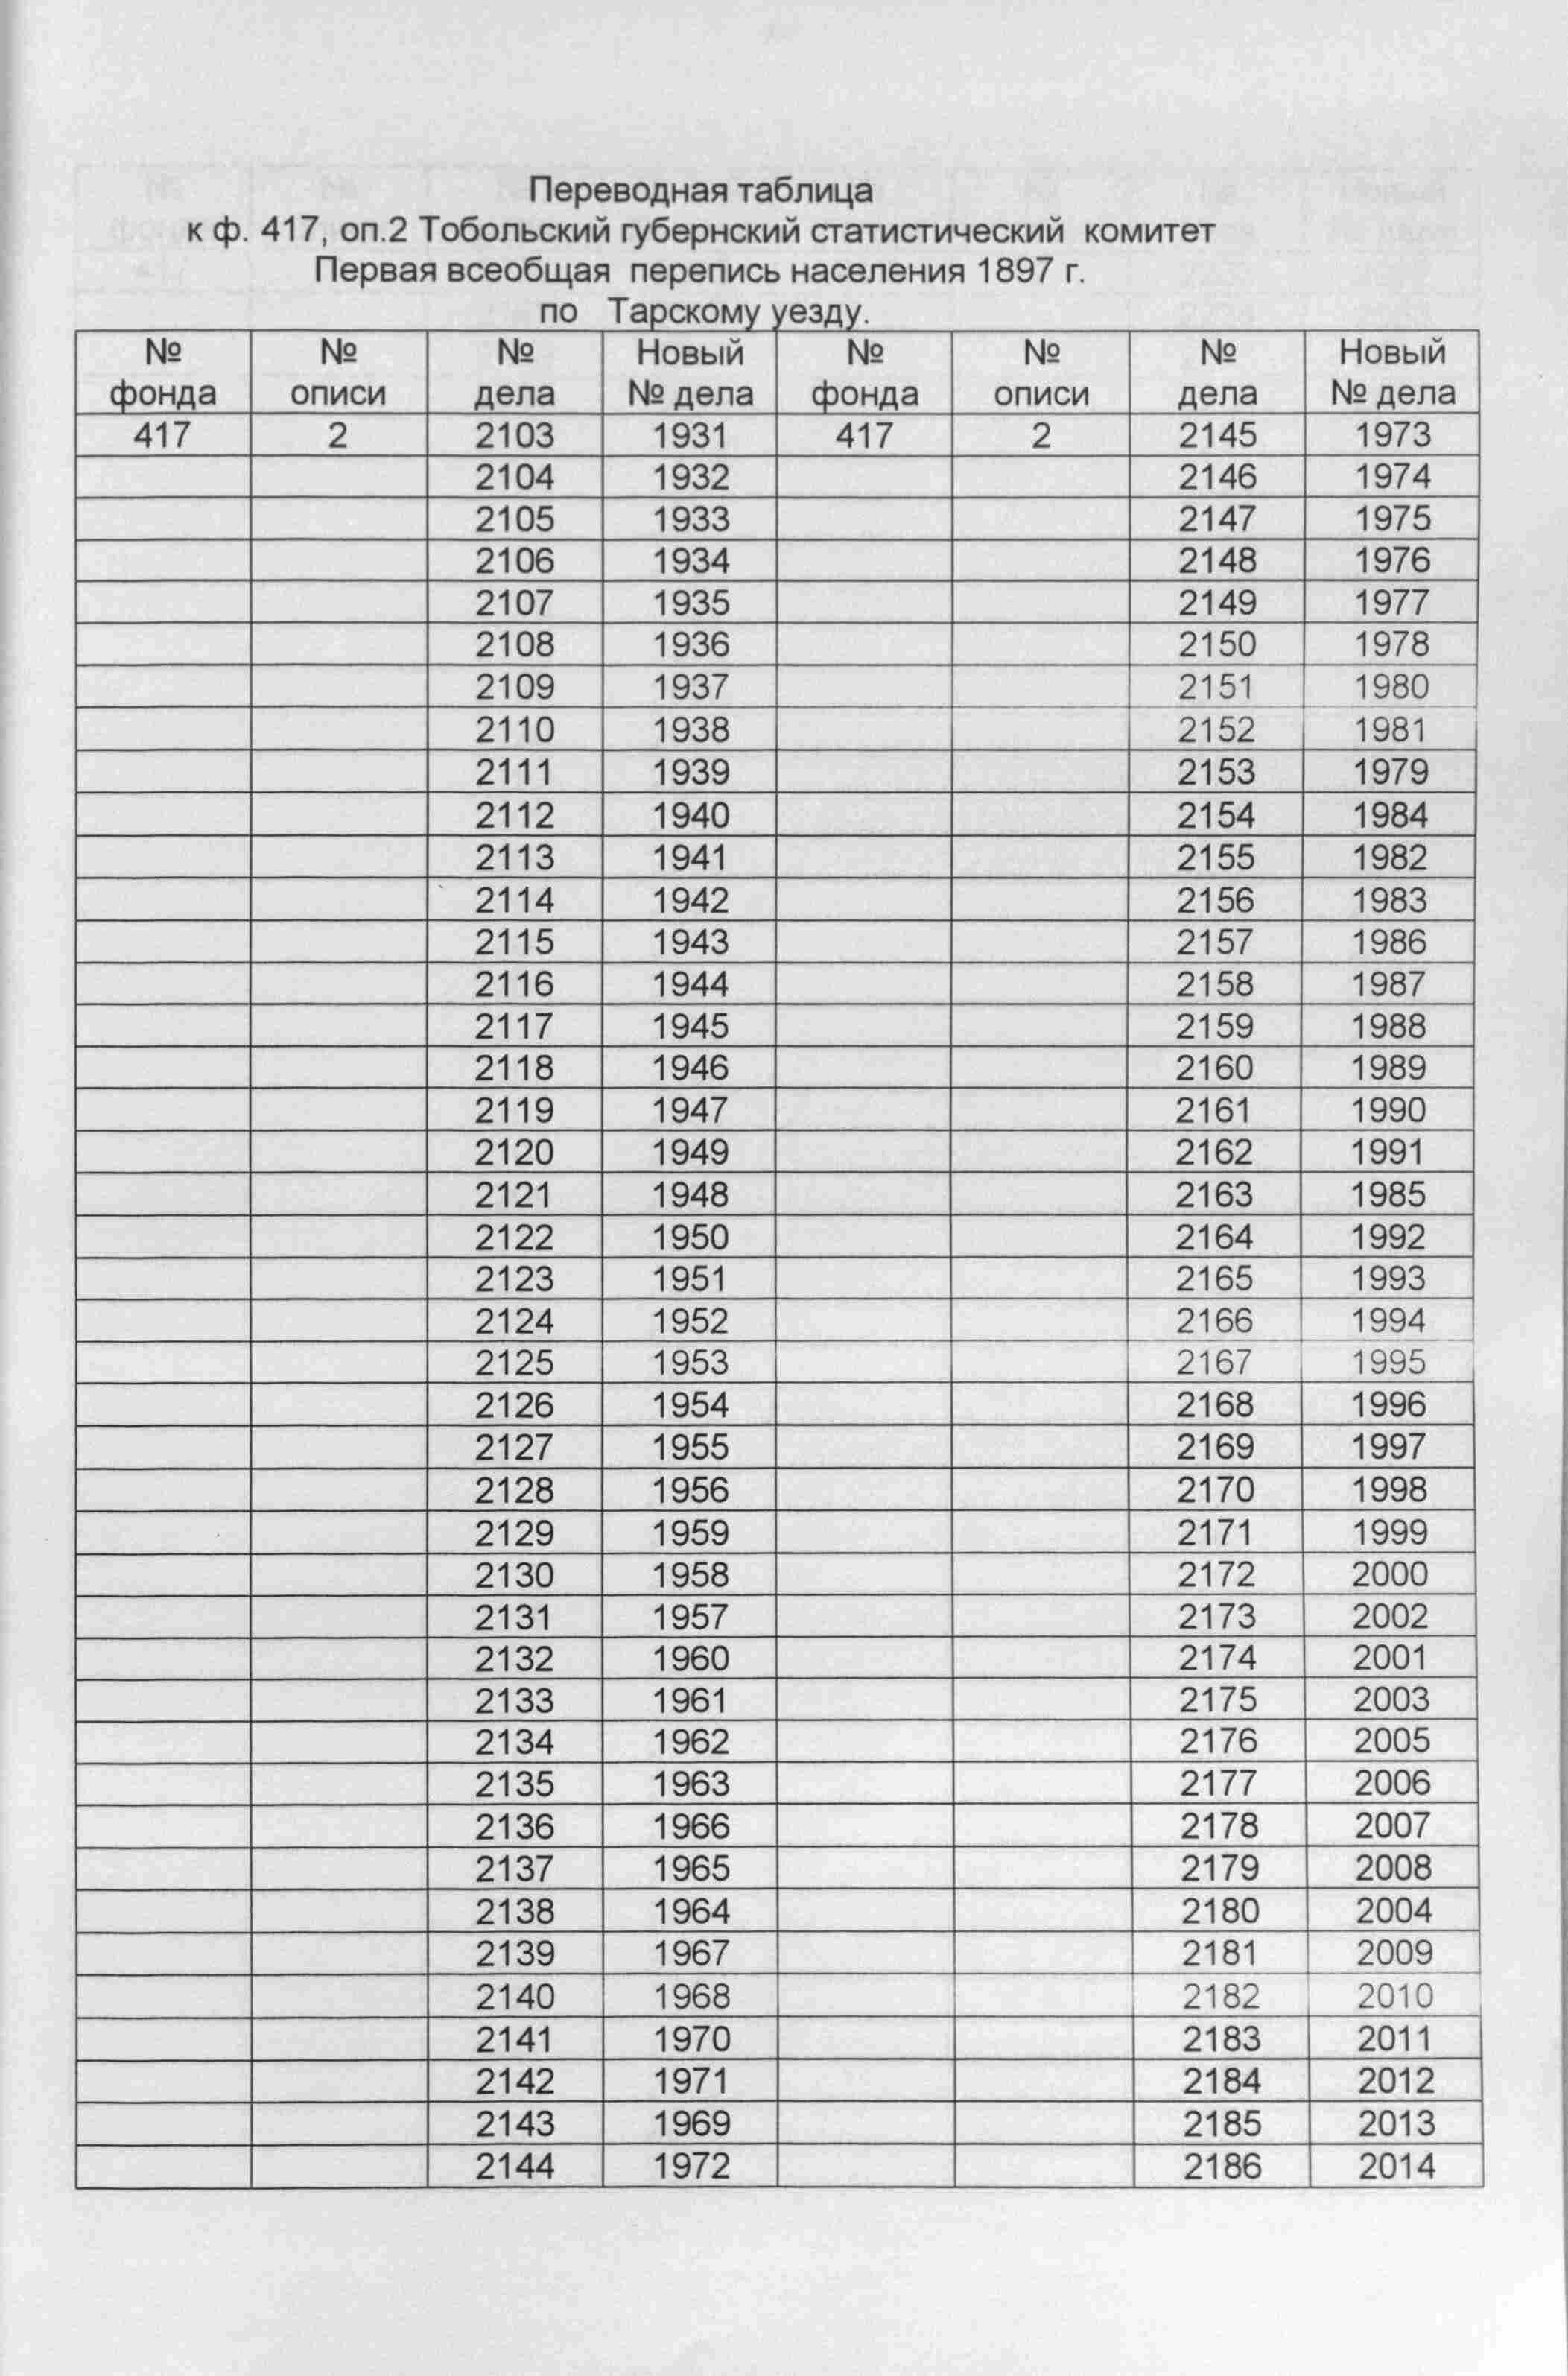 Переводная таблица
к ф. 417, оп.2 Тобольский губернский статистический комитет
Первая всеобщая перепись населения 1897 г.
по Тарскому уезду.
№ № № Новый № № № Новый
фонда описи дела № дела фонда описи дела № дела
417 2 2103 1931 417 2 2145 1973
2104 1932 2146 1974
2105 1933 2147 1975
2106 1934 2148 1976
2107 1935 2149 1977
2108 1936 2150 1978
2109 1937 2151 1980
2110 1938 2152 1981
2111 1939 2153 1979
2112 1940 2154 1984
2113 1941 2155 1982
2114 1942 2156 1983
2115 1943 2157 1986
2116 1944 2158 1987
2117 1945 2159 1988
2118 1946 2160 1989
2119 1947 2161 1990
2120 1949 2162 1991
2121 1948 2163 1985
2122 1950 2164 1992
2123 1951 2165 1993
2124 1952 2166 1994
2125 1953 2167 1995
2126 1954 2168 1996
2127 1955 2169 1997
2128 1956 2170 1998
2129 1959 2171 1999
2130 1958 2172 2000
2131 1957 2173 2002
2132 1960 2174 2001
2133 1961 2175 2003
2134 1962 2176 2005
2135 1963 2177 2006
2136 1966 2178 2007
2137 1965 2179 2008
2138 1964 2180 2004
2139 1967 2181 2009
2140 1968 2182 2010
2141 1970 2183 2011
2142 1971 2184 2012
2143 1969 2185 2013
2144 1972 2186 2014